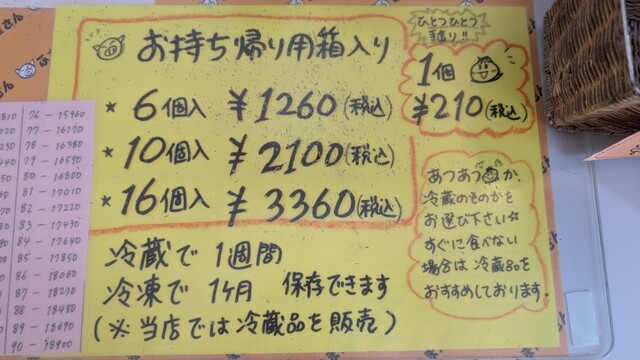 お持ち帰り用箱入り
★ 6個入 ¥1260(税込)
★ 10個入 ¥2100(税込)
★ 16個入 ¥3360(税込)
冷蔵で 1週間
冷凍で 1ヶ月 保存できます
(※当店では冷蔵品を販売)
ひとつひとつ
手造り!!
1個
¥210(税込)
あつあつか、
冷蔵のものかを
お選び下さい☆
すぐに食べない
場合は冷蔵品を
おすすめしております。
76-15960
77-16170
78-16380
79-16590
80-16800
81-17010
82-17220
83-17430
84-17640
85-17850
86-18060
87-18270
88-18480
89-18690
90-18900